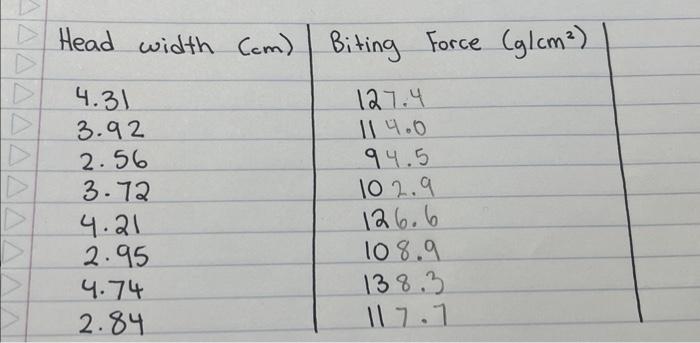 Head width (cm) Biting Force (g/cm²)
4.31 127.4
3.92 114.0
2.56 94.5
3.72 102.9
4.21 126.6
2.95 108.9
4.74 138.3
2.84 117.7